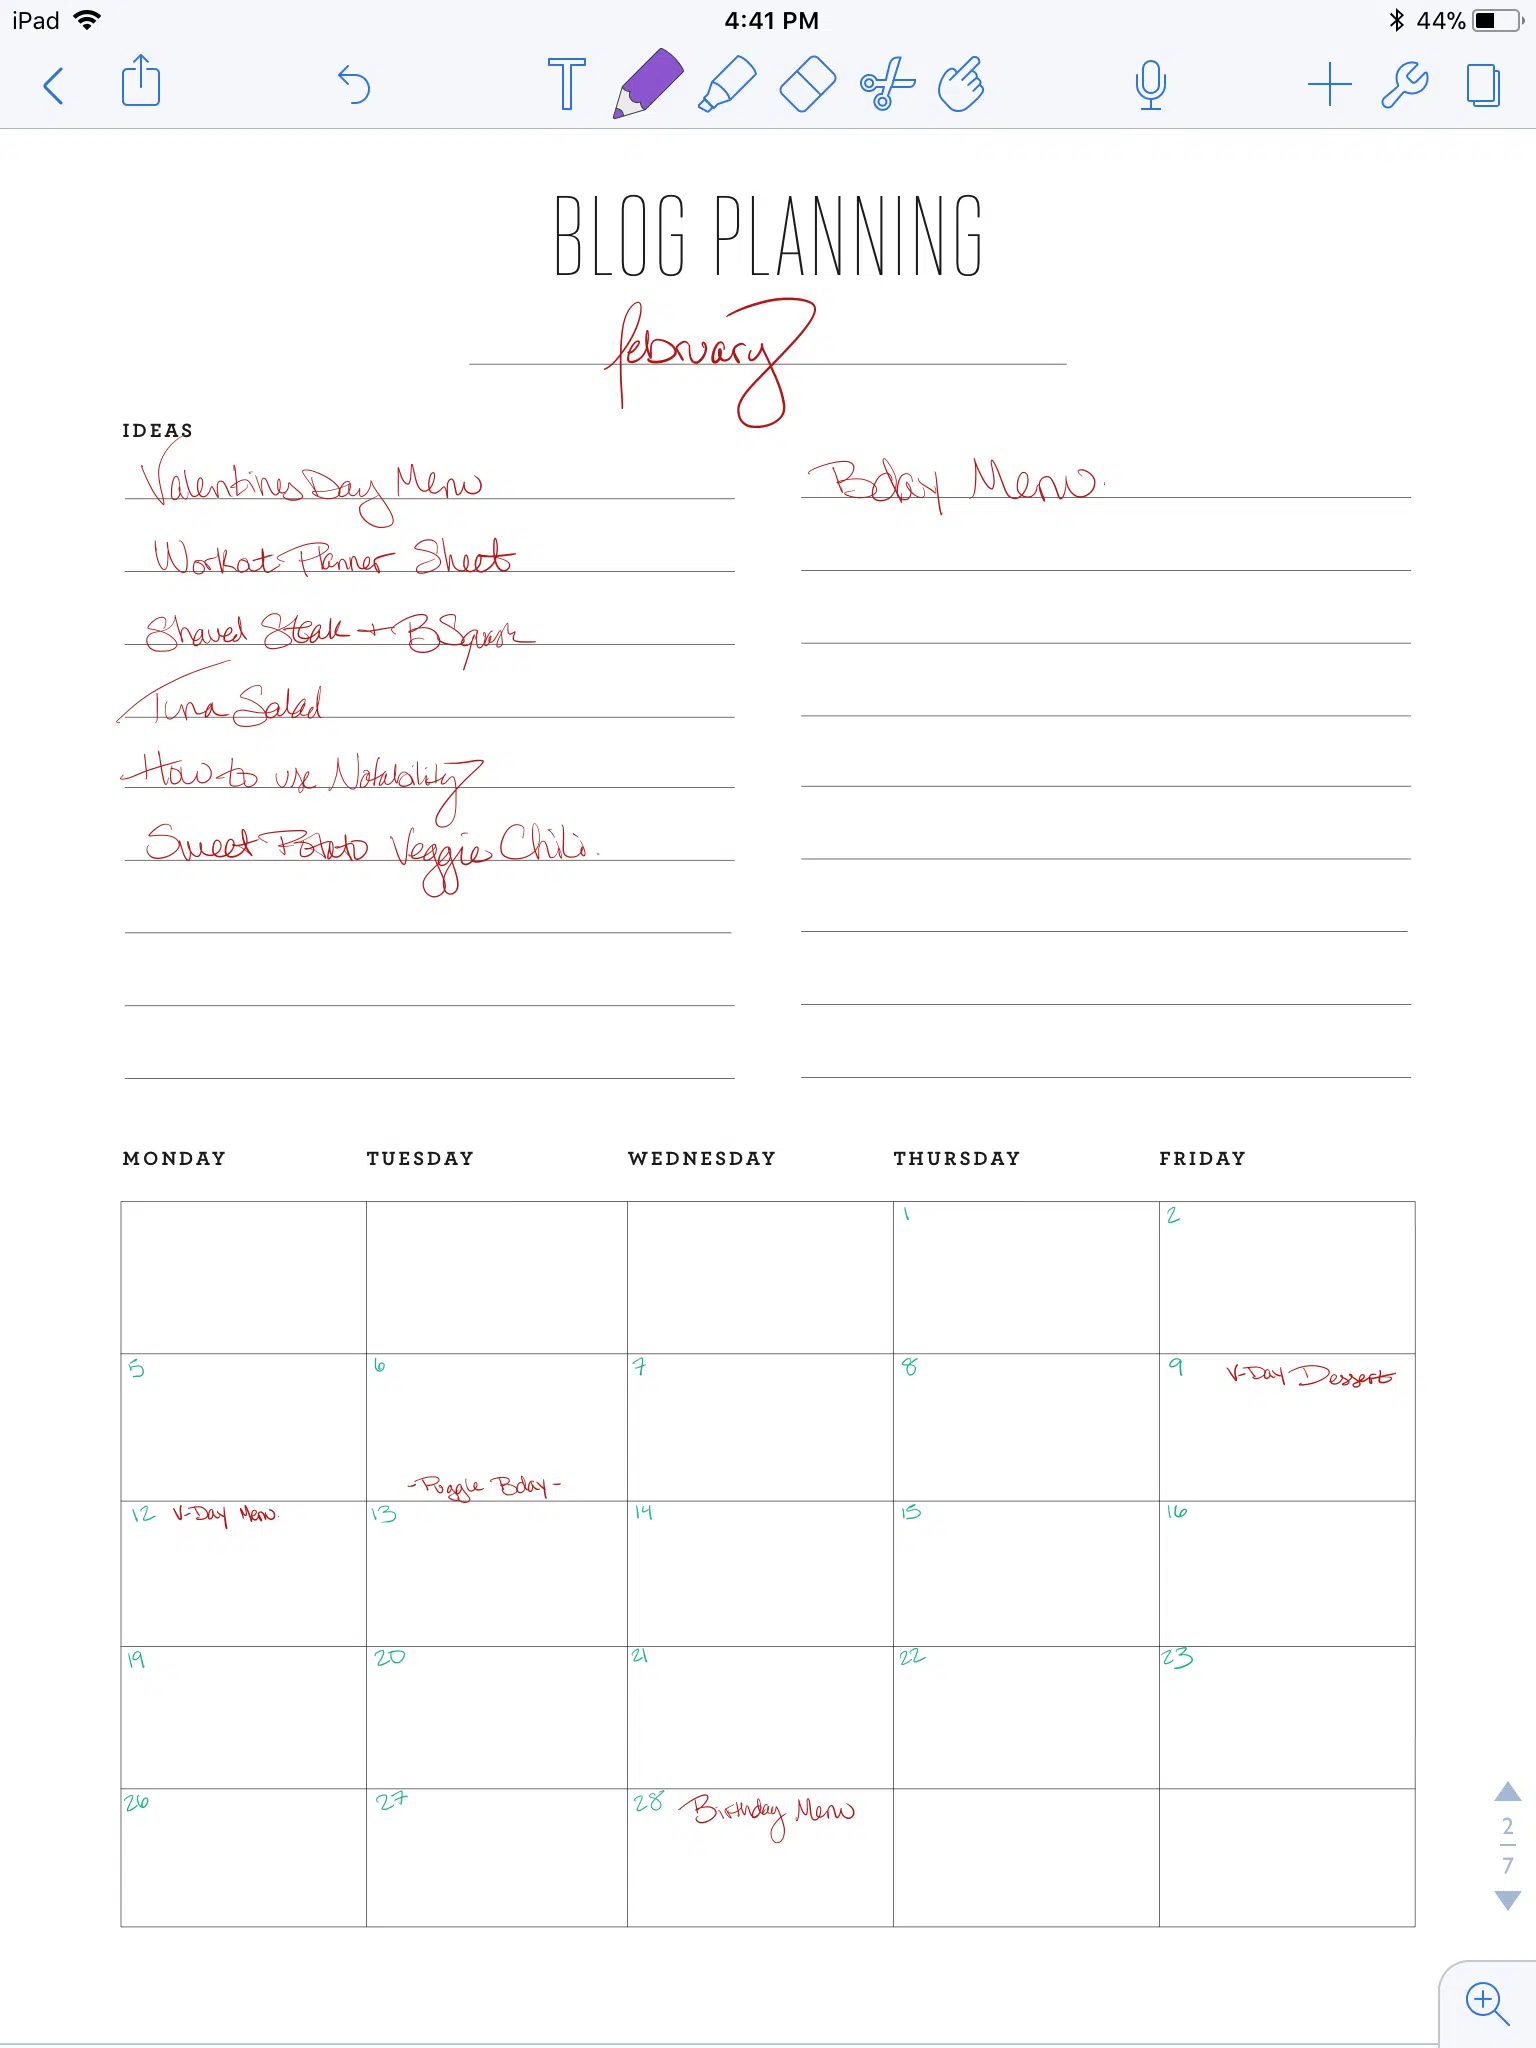 iPad 4:41 PM 44%
BLOG PLANNING
february
IDEAS
Valentines Day Menu
Workout Planner Sheet
Shaved Steak + B Squash
Tuna Salad
How to use Notability
Sweet Potato Veggie Chili.
Bday Menu.
MONDAY TUESDAY WEDNESDAY THURSDAY FRIDAY
1 2
5 6 7 8 9 V-Day Dessert
-Puggle Bday-
12 V-Day Menu. 13 14 15 16
19 20 21 22 23
26 27 28 Birthday Menu
2
7